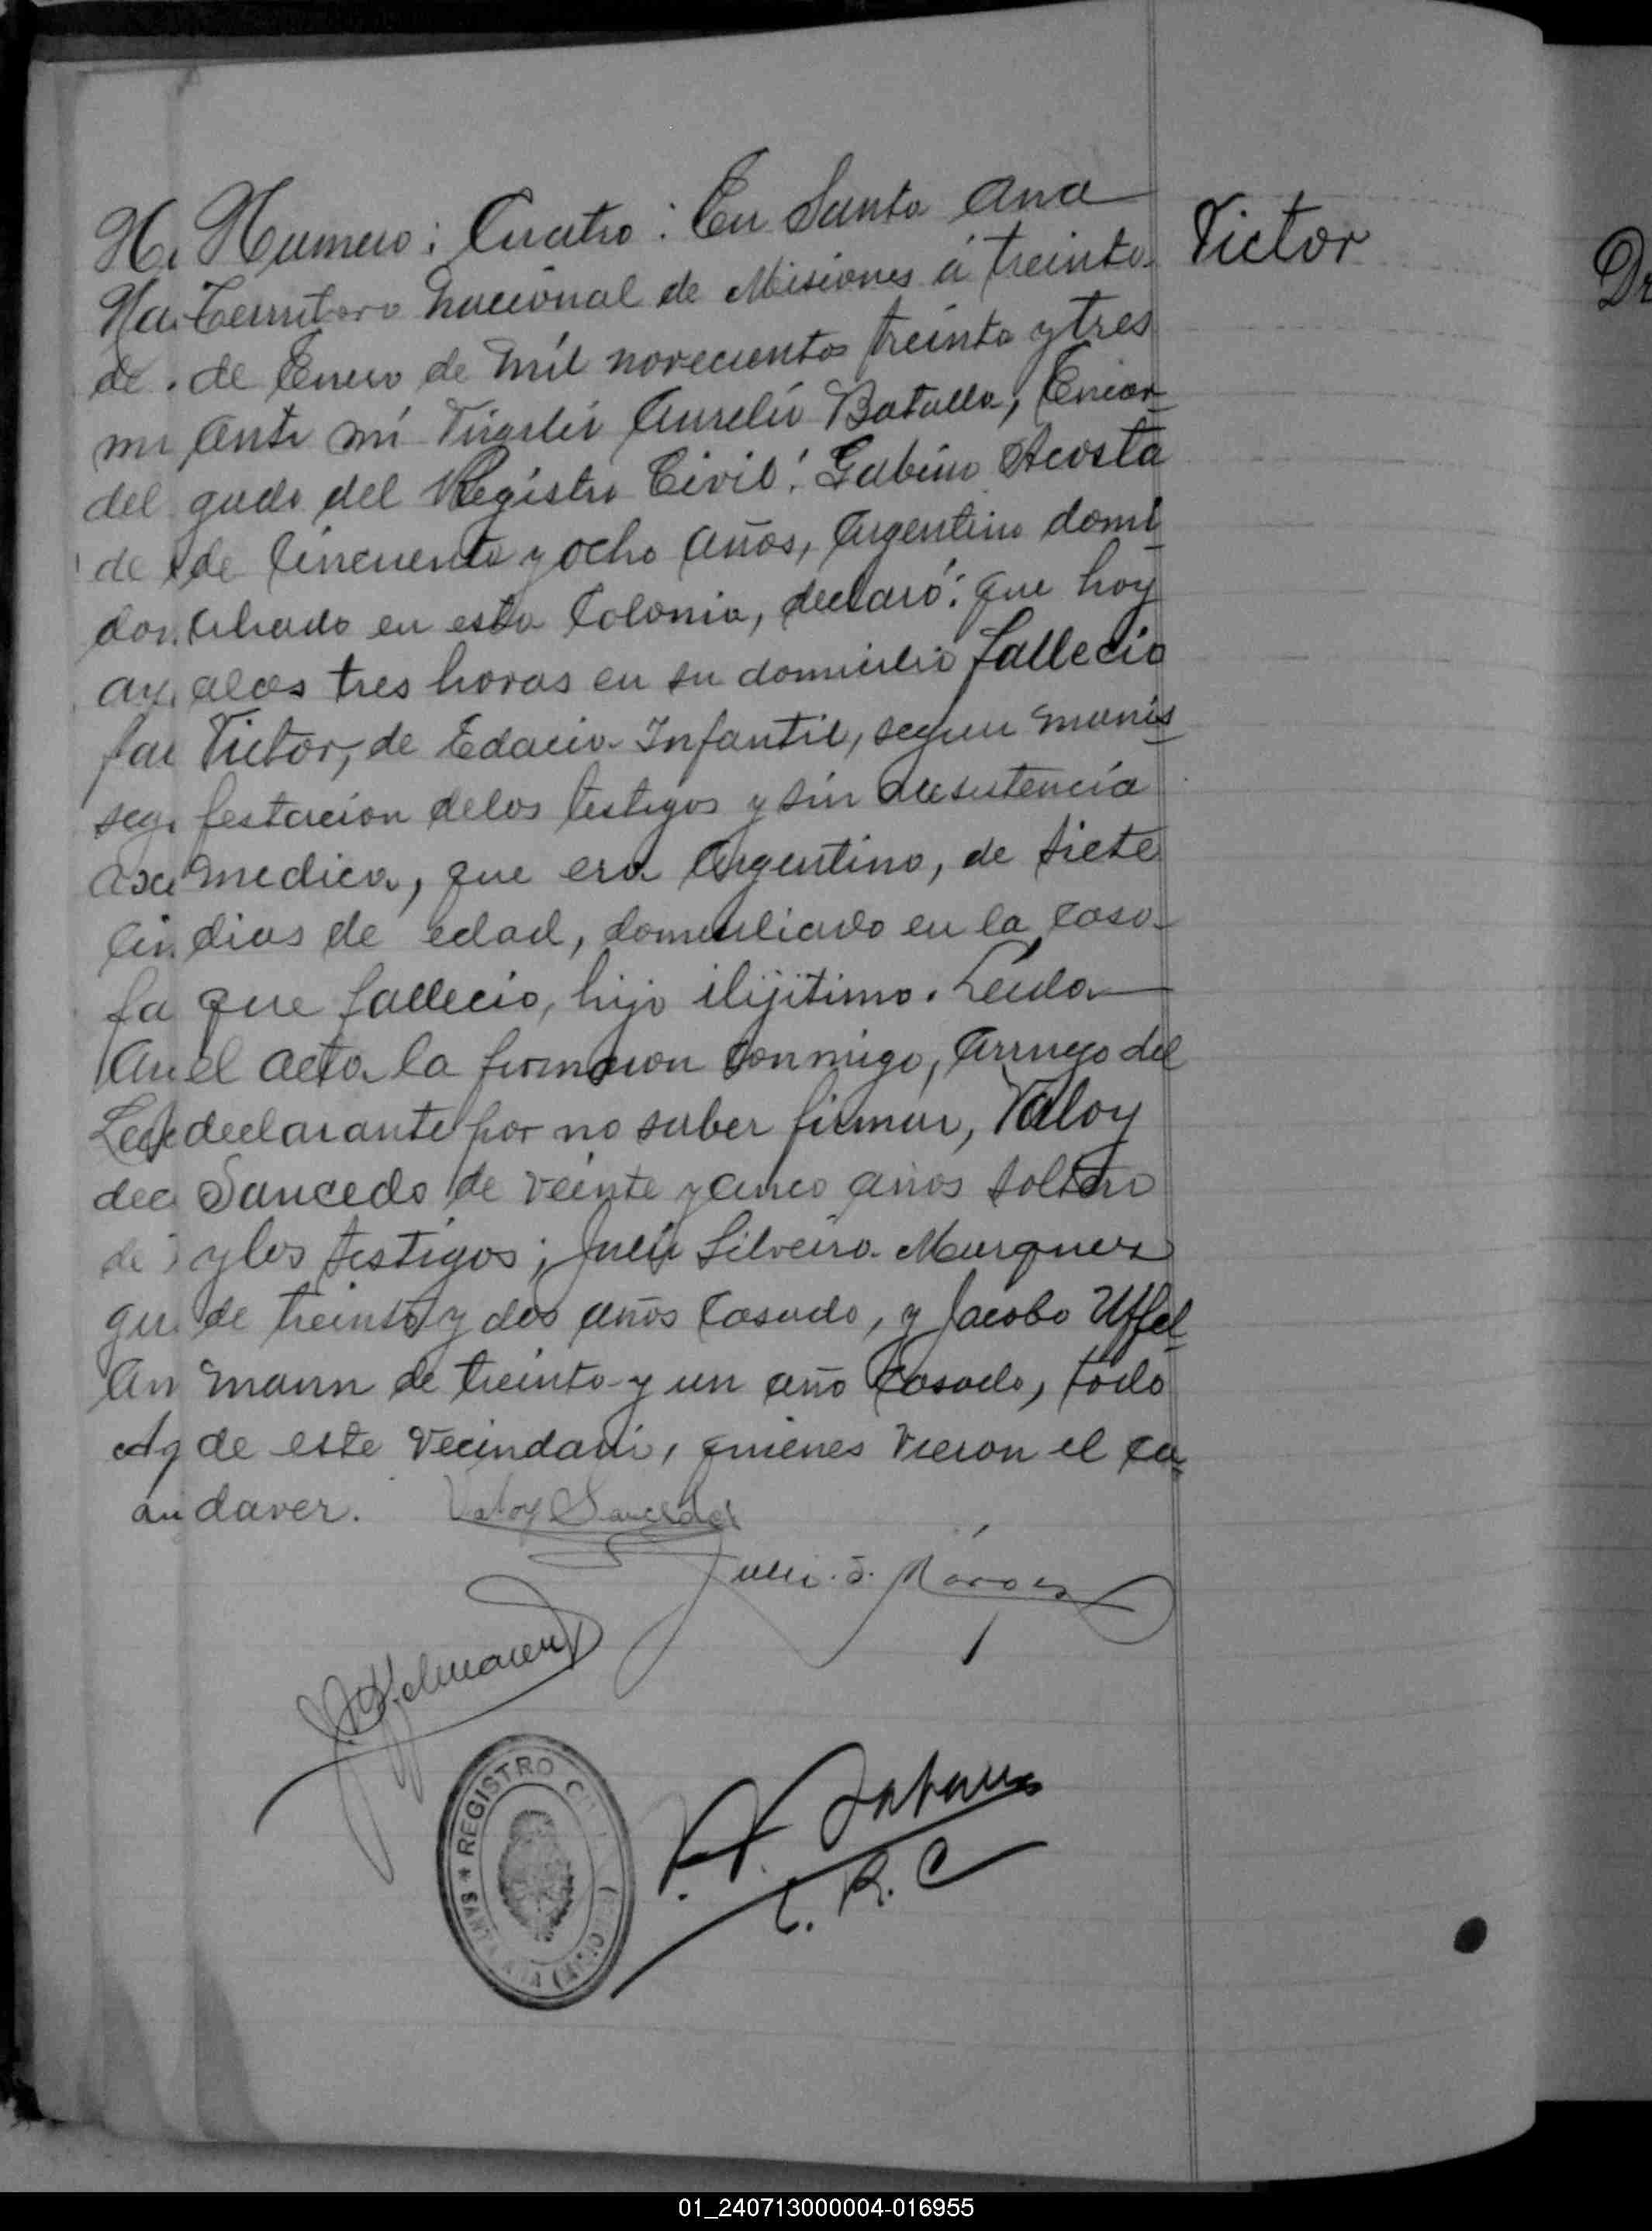 Numero: Cuatro: En Santa Ana
Victor
Territoro Nacional de Misiones á treinta
de Enero de mil novecientos treinta y tres
Ante mi Virgilio Aurelio Batalla, Encar-
gado del Registro Civil: Gabino Acosta
de Cincuenta y ocho años, Argentino domi-
ciliado en esta Colonia, declaró: que hoy
a las tres horas en su domicilio fallecio
Victor, de Infantil, segun manis-
festacion de los testigos y sin
medica, que era Argentino, de siete
dias de edad, domiciliado en la casa
que fallecio, hijo ilijitimo. Leida
el acta la firmaron conmigo, arruego del
declarante por no saber firmar, Valoy
Saucedo de veinte y cinco años soltero
y los testigos; Julio Silveira Marquez
de treinta y dos años casado, y Jacobo Uffel-
mann de treinta y un año casado, todo
de este vecindario, quienes vieron el ca-
daver. Valoy Saucedo
Julio S.
REGISTRO CIVIL
SANTA ANA (MISIONES)
E. R. C
01_240713000004-016955